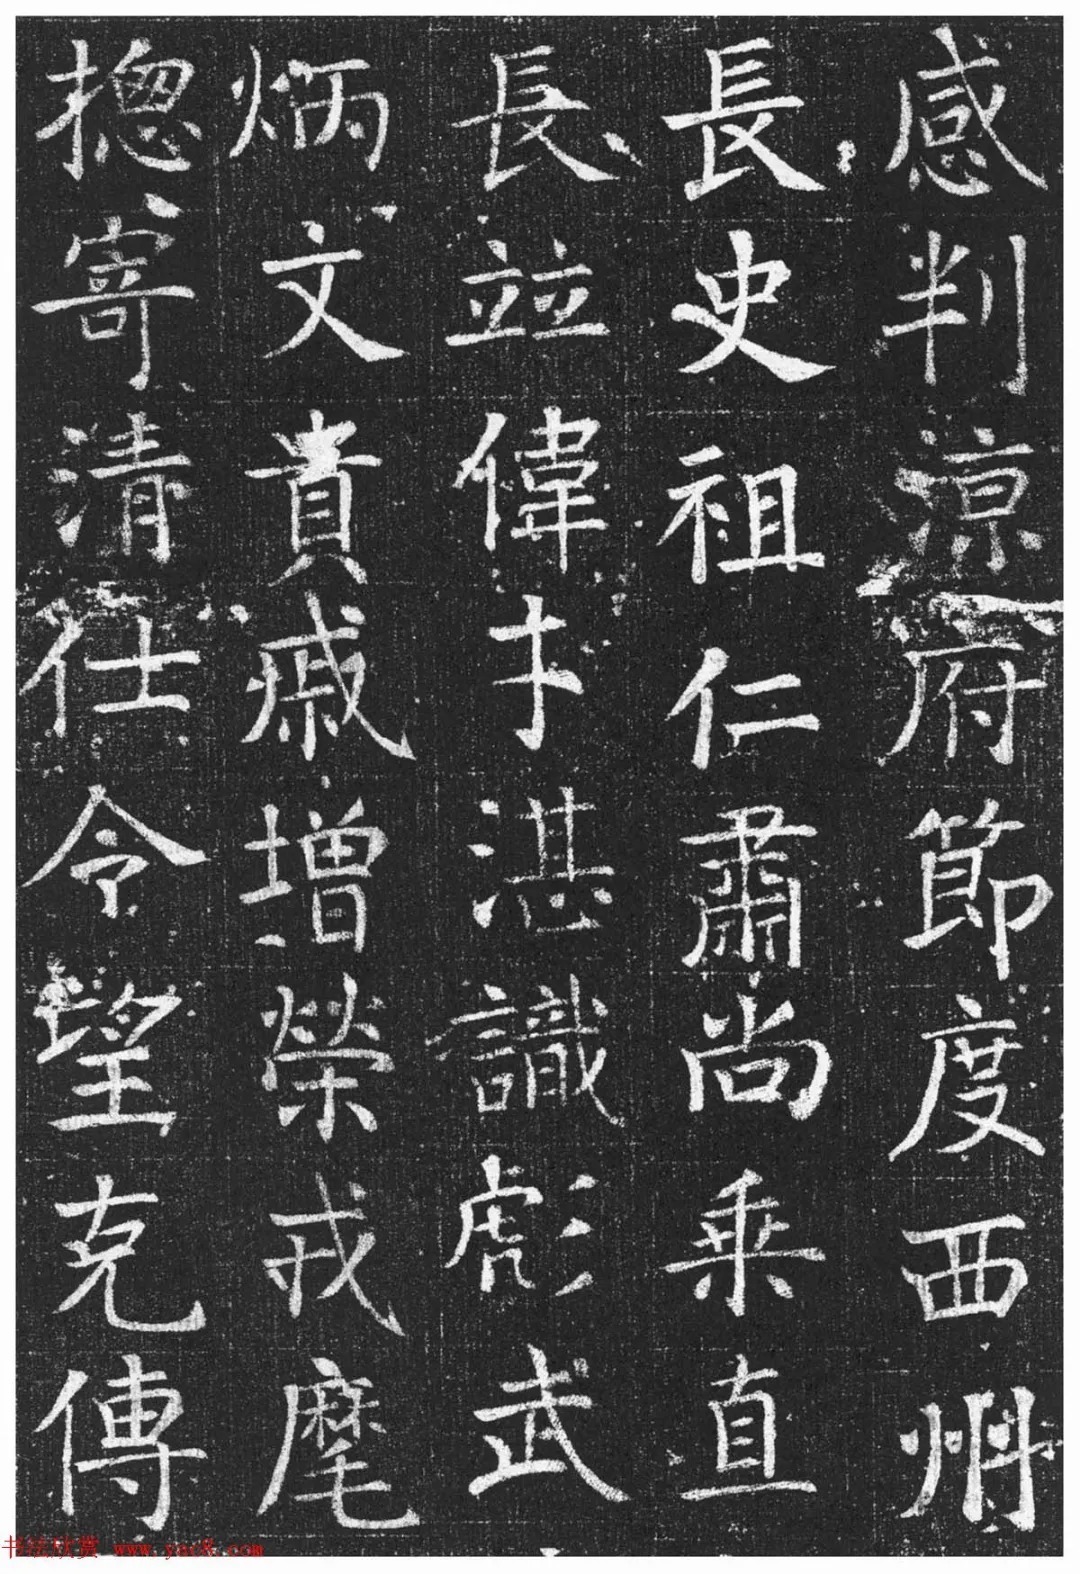 感判涼府節度西州
長史祖仁肅尚乘直
長並偉才湛識彪武
炳文貴戚增榮戎麾
揔寄清仕令望克傳
书法欣赏 www.yac8.com